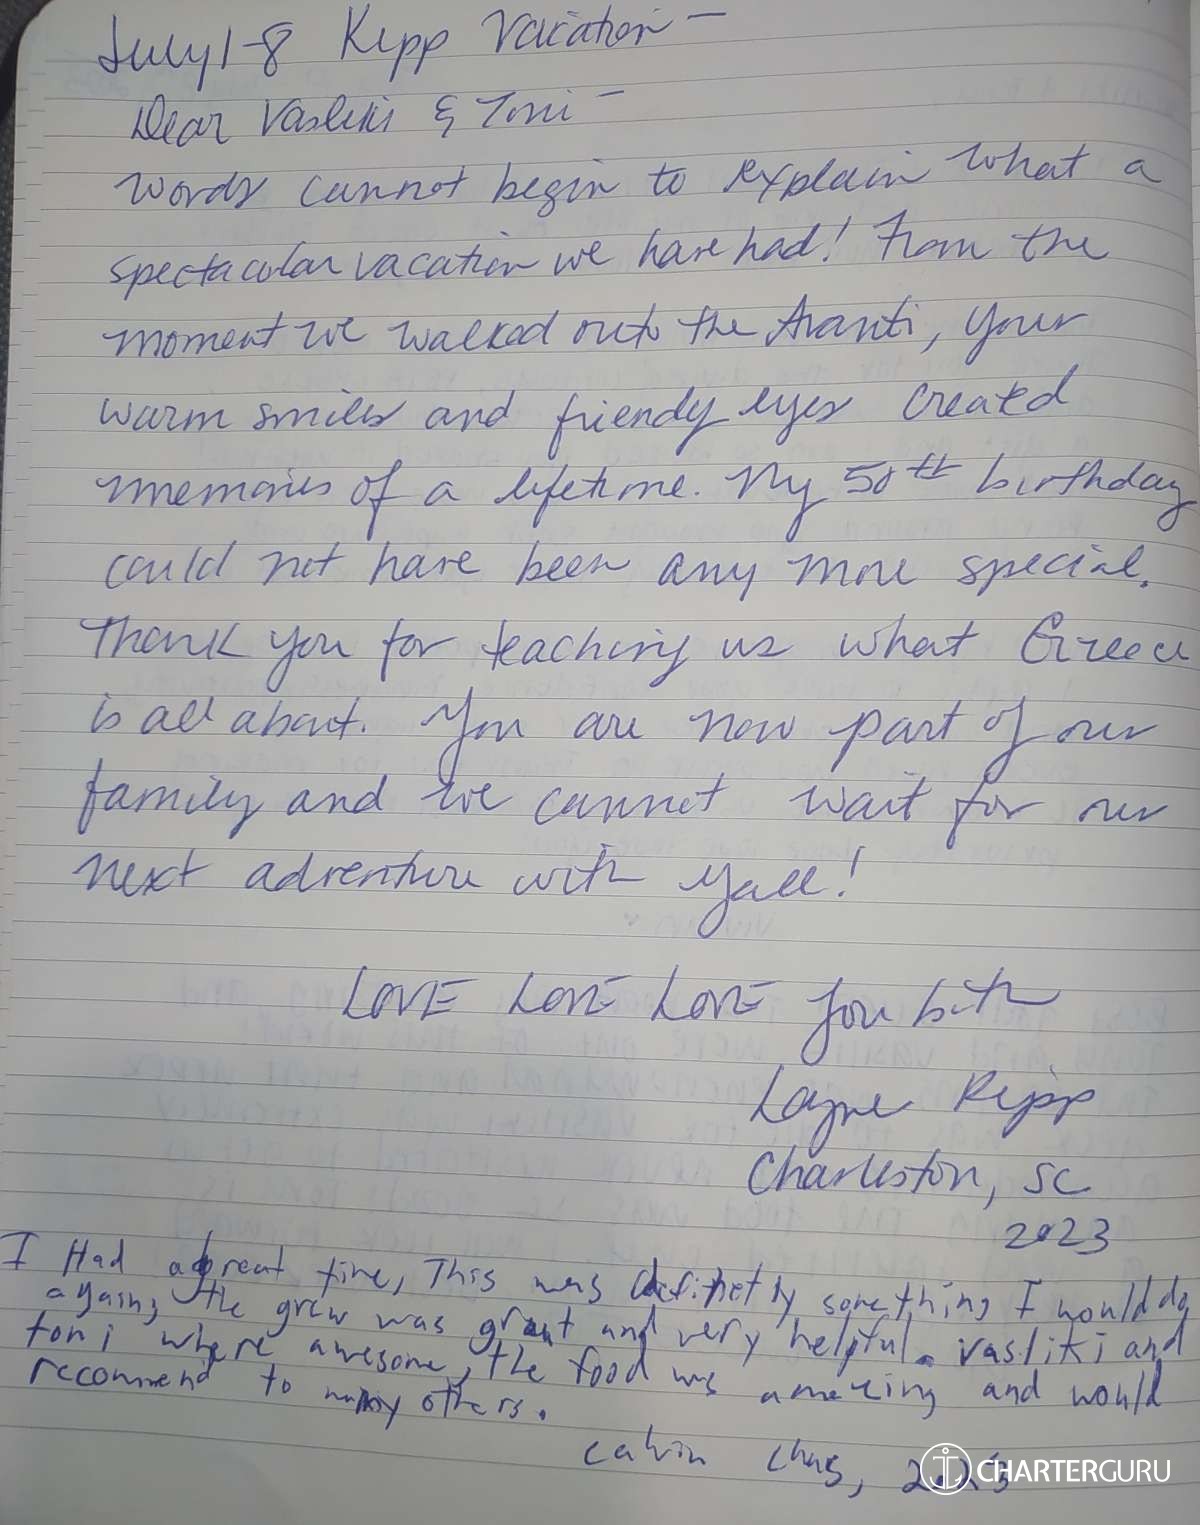 July 1-8 Kipp Vacation -
Dear Vasliki & Toni -
Words cannot begin to explain what a
spectacular vacation we have had! From the
moment we walked onto the Avanti, your
warm smiles and friendly eyes created
memories of a lifetime. My 50th birthday
could not have been any more special.
Thank you for teaching us what Greece
is all about. You are now part of our
family and we cannot wait for our
next adventure with yall!
LOVE LOVE LOVE you both
Layne Kipp
Charleston, SC
2023
I Had a great time, This was definetly something I would do
again, the grew was great and very helpful. vasliki and
toni where awesome, the food was amazing and would
recommend to many others.
calvin chas, 2023
CHARTERGURU